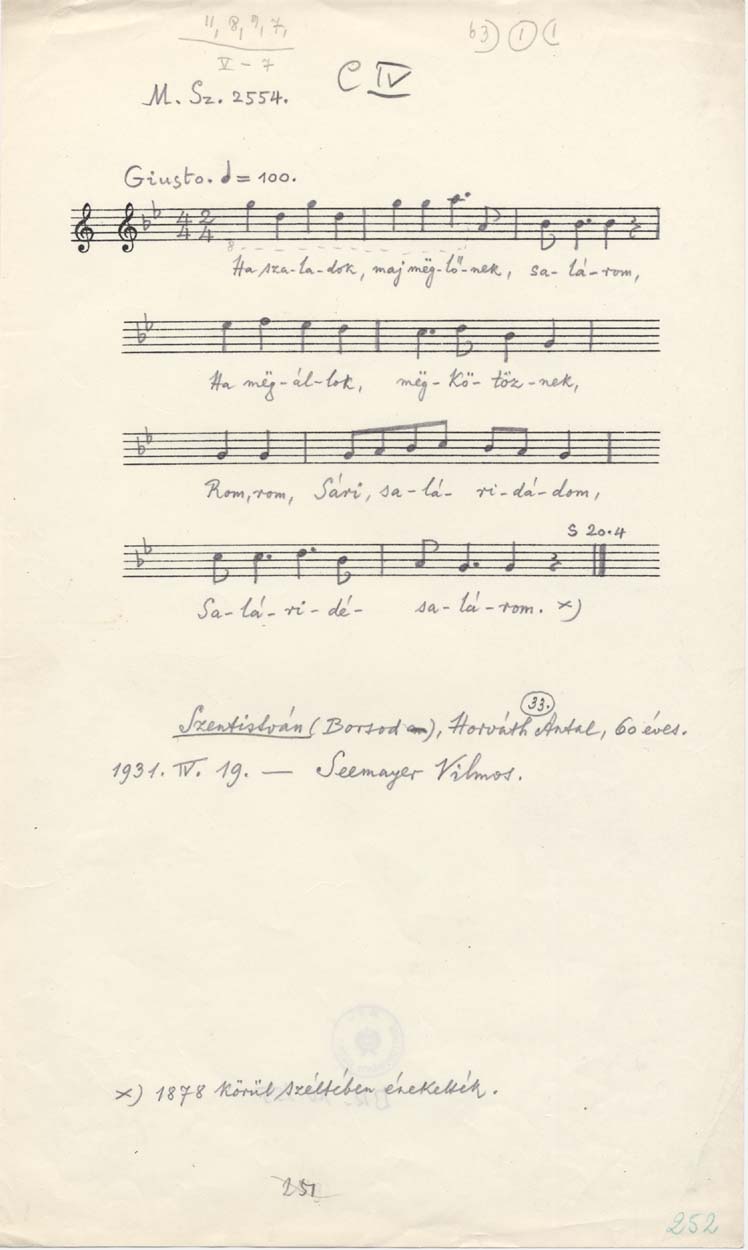 11, 8, 9, 7,
V - 7
b3) (1) (1
C IV
M. Sz. 2554.
Giusto. = 100.
4 2
4 4
8
Ha sza-la-dok, maj mëg-lő-nek, sa-lá-rom,
Ha mëg-ál-lok, mëg-kö-töz-nek,
Rom, rom, Sári, sa-lá- ri-dá-dom,
S 20.4
Sa-lá-ri-dé- sa-lá-rom. x)
33.
Szentistván (Borsod), Horváth Antal, 60 éves.
1931. IV. 19. — Seemayer Vilmos.
x) 1878 körül széltében énekelték.
251
252